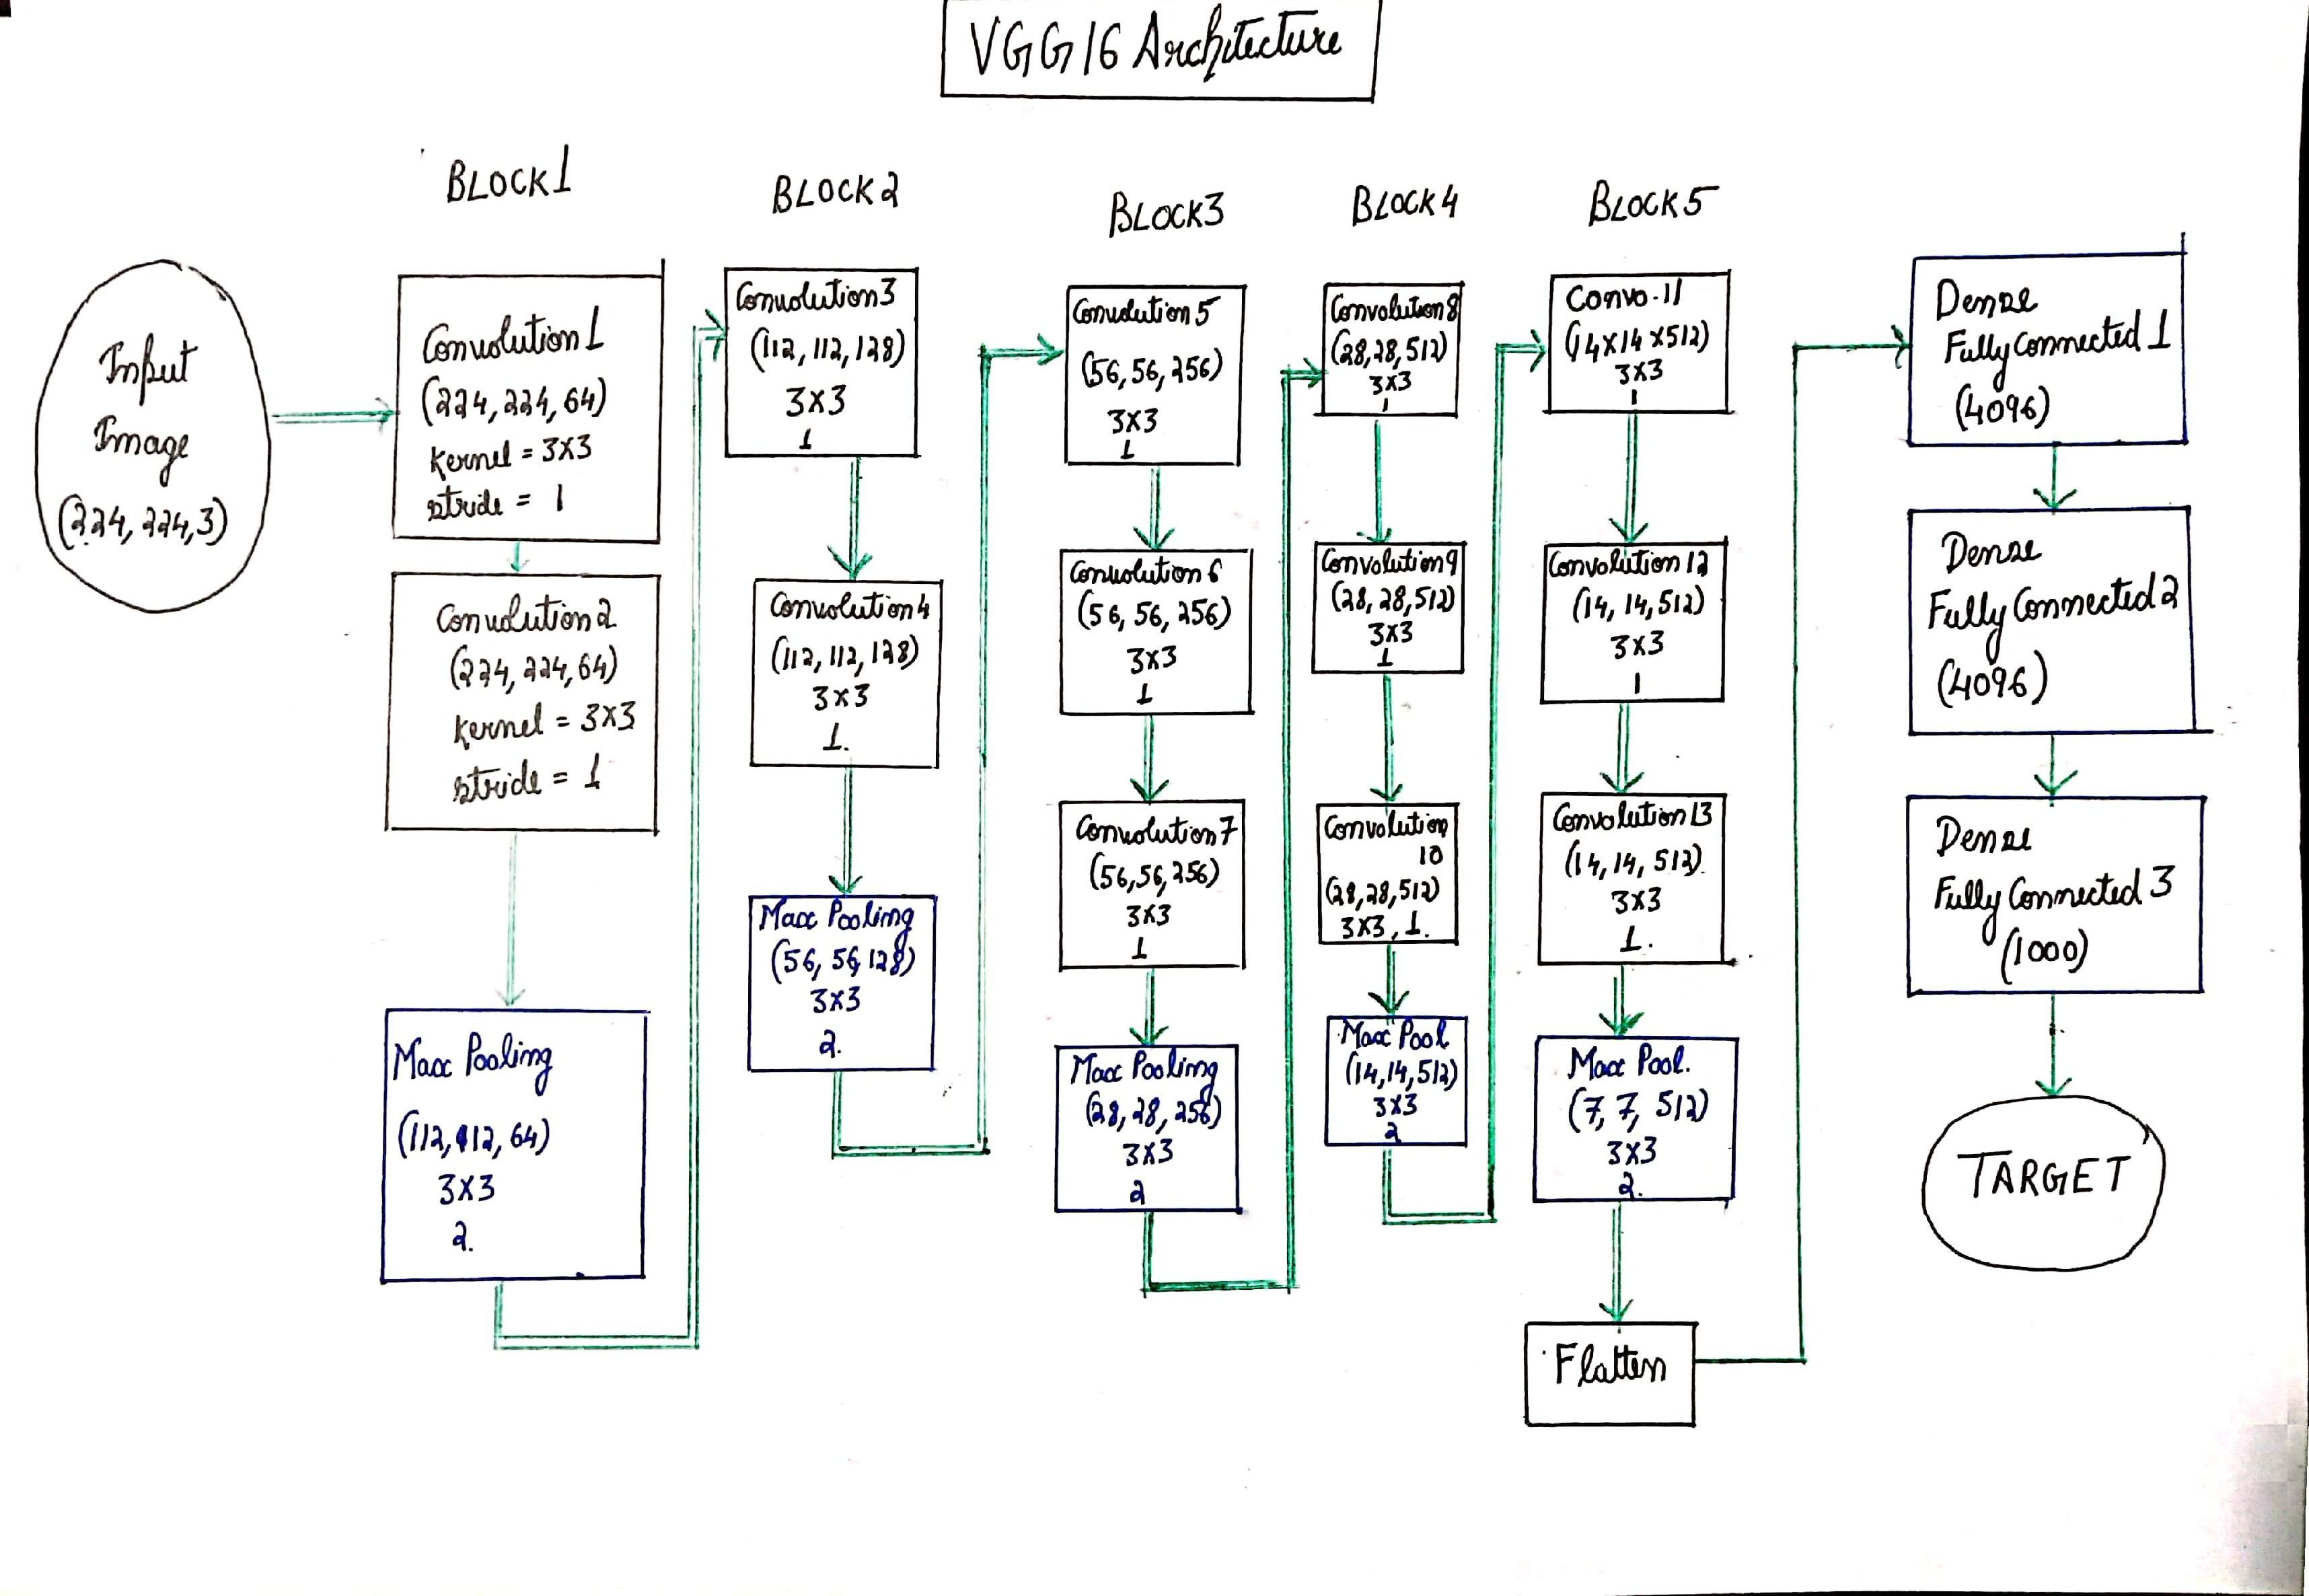 VGG16 Architecture
BLOCK1
BLOCK2
BLOCK3
BLOCK4
BLOCK5
Input
Image
(224, 224,3)
Convolution 1
(224, 224, 64)
kernel = 3x3
stride = 1
Convolution 2
(224, 224, 64)
kernel = 3x3
stride = 1
Max Pooling
(112, 112, 64)
3x3
2.
Convolution 3
(112, 112, 128)
3x3
1
Convolution 4
(112, 112, 128)
3x3
1.
Max Pooling
(56, 56, 128)
3x3
2.
Convolution 5
(56, 56, 256)
3x3
1
Convolution 6
(56, 56, 256)
3x3
1
Convolution 7
(56,56,256)
3x3
1
Max Pooling
(28, 28, 256)
3x3
2
Convolution 8
(28,28,512)
3x3
1
Convolution 9
(28, 28,512)
3x3
1
Convolution
10
(28,28,512)
3x3, 1.
Max Pool
(14,14,512)
3x3
2
Convo.11
(14x14x512)
3x3
1
Convolution 12
(14, 14, 512)
3x3
1
Convolution 13
(14, 14, 512)
3x3
1.
Max Pool.
(7, 7, 512)
3x3
2.
Flatten
Dense
Fully Connected 1
(4096)
Dense
Fully Connected 2
(4096)
Dense
Fully Connected 3
(1000)
TARGET